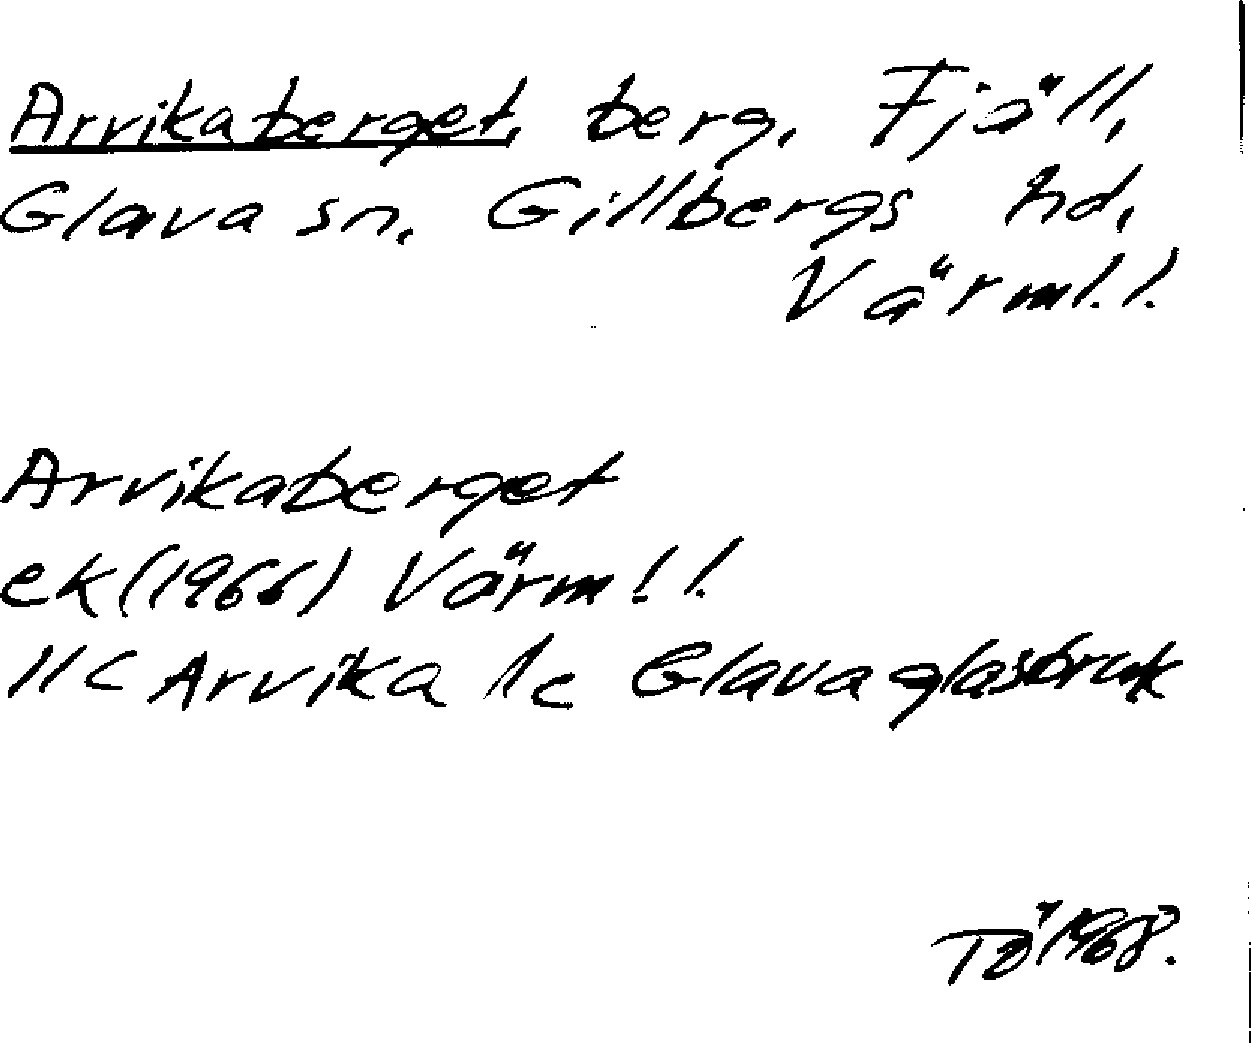 Arvikaberget, berg, Fjäll,
Glava sn, Gillbergs hd,
Värml. l.
Arvikaberget
ek (1966) Värml. l.
11c Arvika 1c Glava glasbruk
Tö 1968.